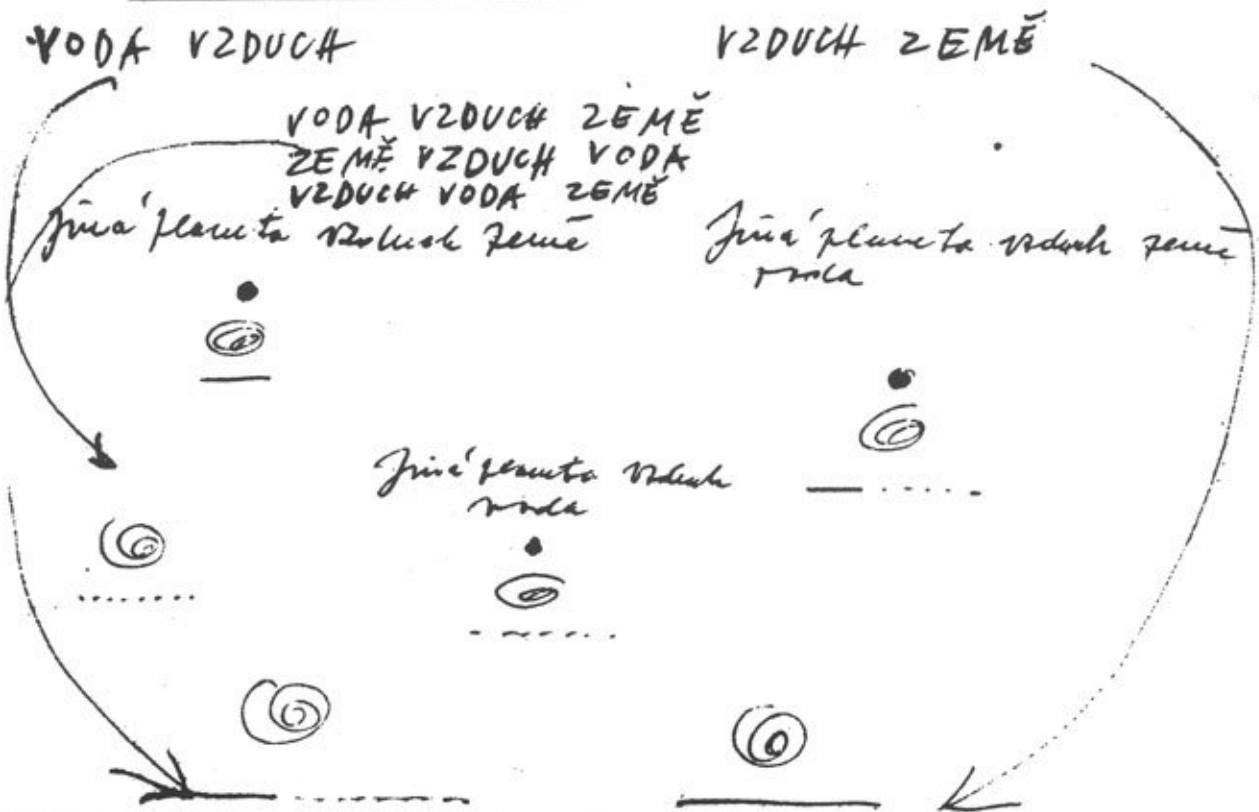 VODA VZDUCH
VZDUCH ZEMĚ
VODA VZDUCH ZEMĚ
ZEMĚ VZDUCH VODA
VZDUCH VODA ZEMĚ
Jiná planeta vzduch země
Jiná planeta vzduch země
voda
Jiná planeta vzduch
voda